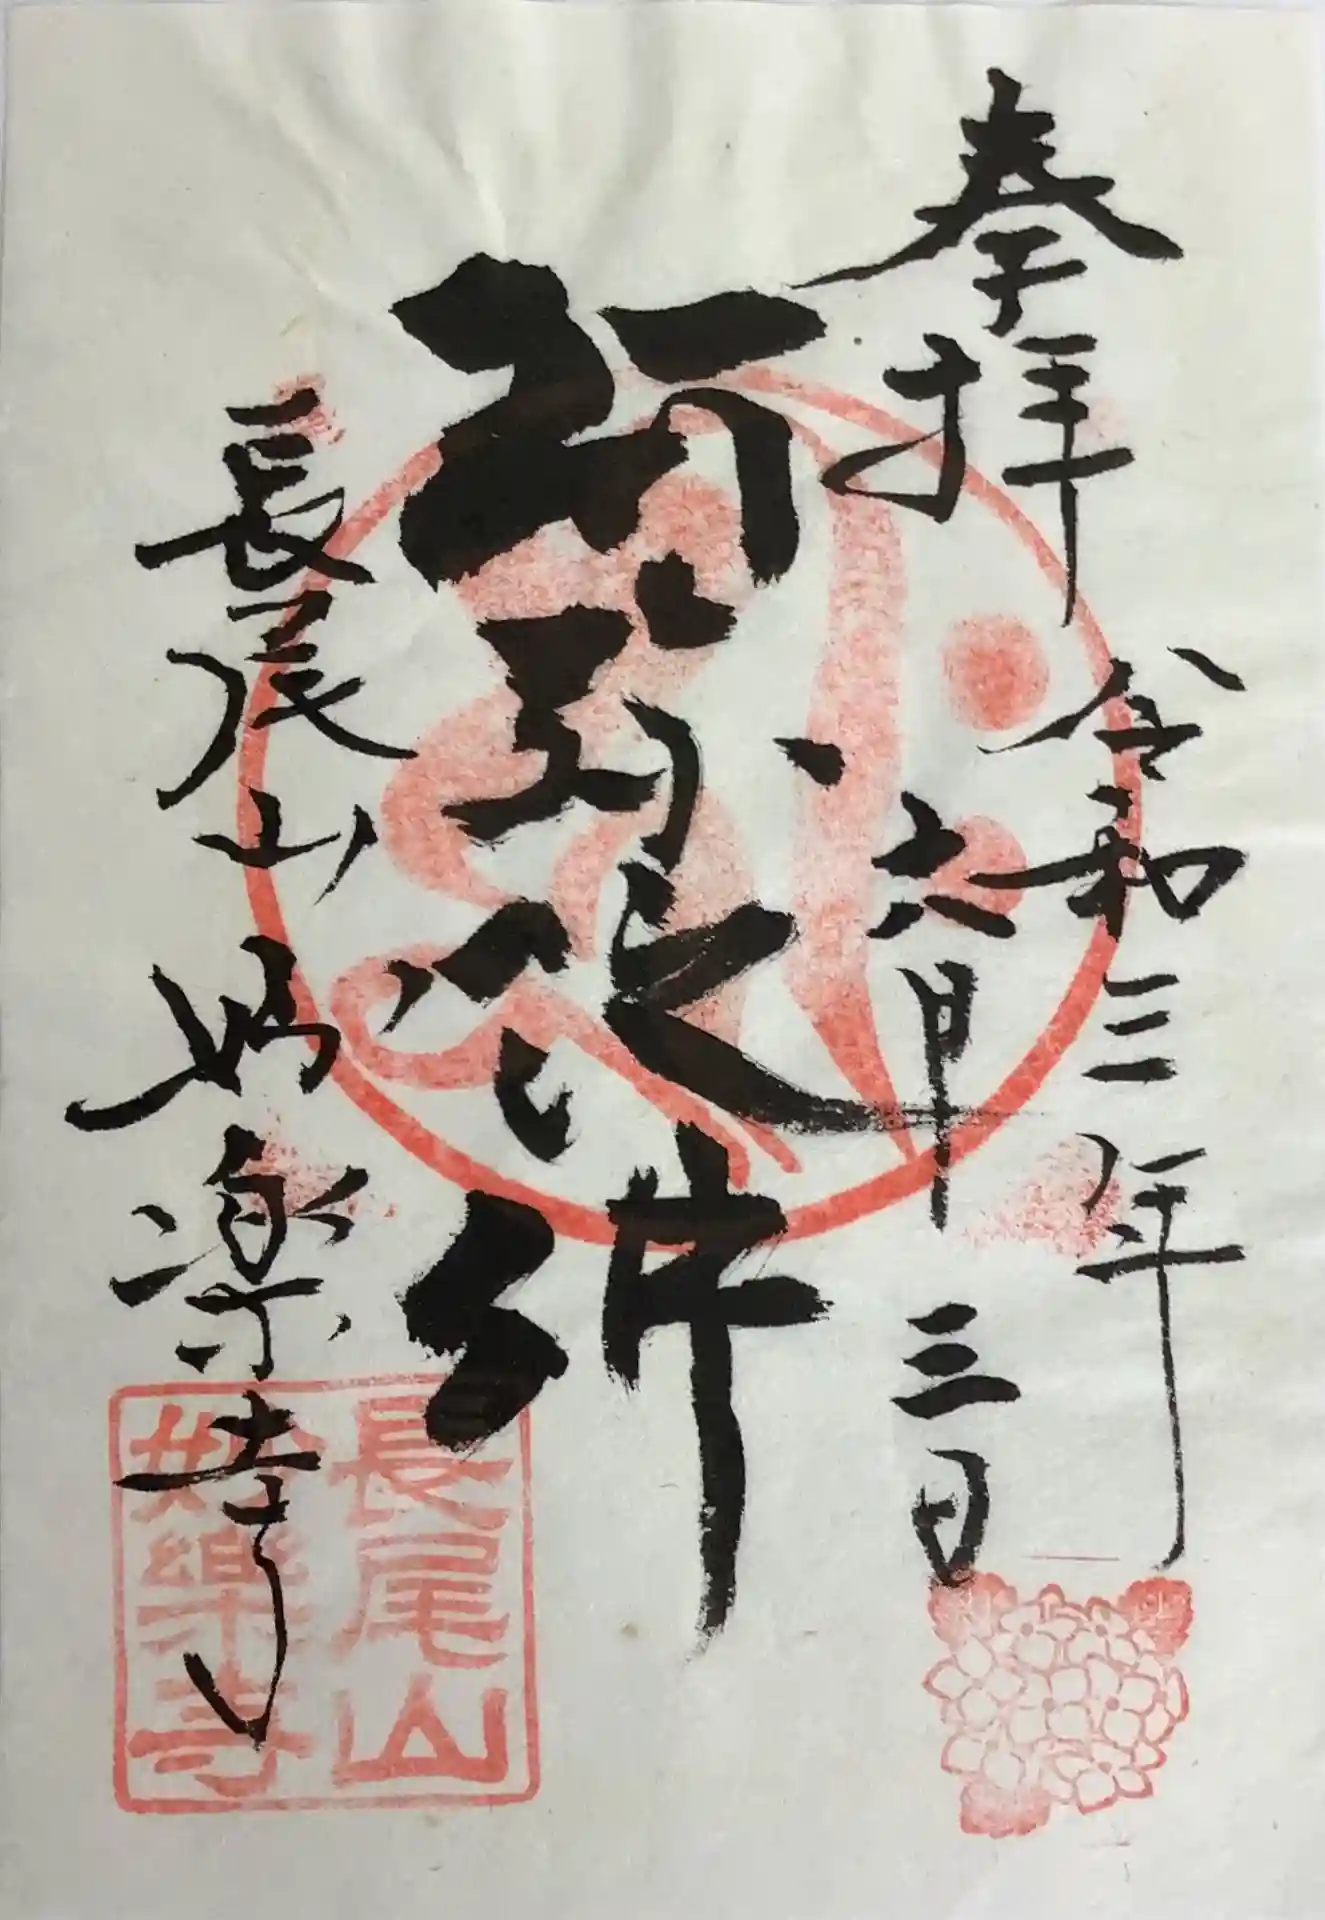 奉拝
令和三年
六月三日
阿弥陀
長尾山 妙楽寺
長尾山
妙樂寺